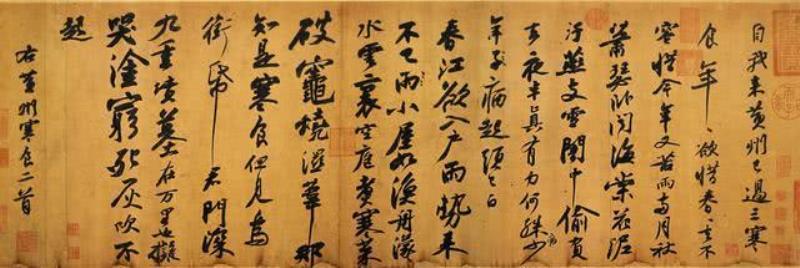 自我來黃州已過三寒
食年々欲惜春々去不
容惜今年又苦雨兩月秋
蕭瑟卧聞海棠花泥
汙燕支雪闇中偷負
去夜半真有力何殊病少
年子病起頭已白
春江欲入戶雨勢來
不已雨小屋如漁舟濛
々水雲裏空庖煮寒菜
破竈燒濕葦那
知是寒食但見烏
銜帋君門深
九重墳墓在万里也擬
哭塗窮死灰吹不
起
右黃州寒食二首